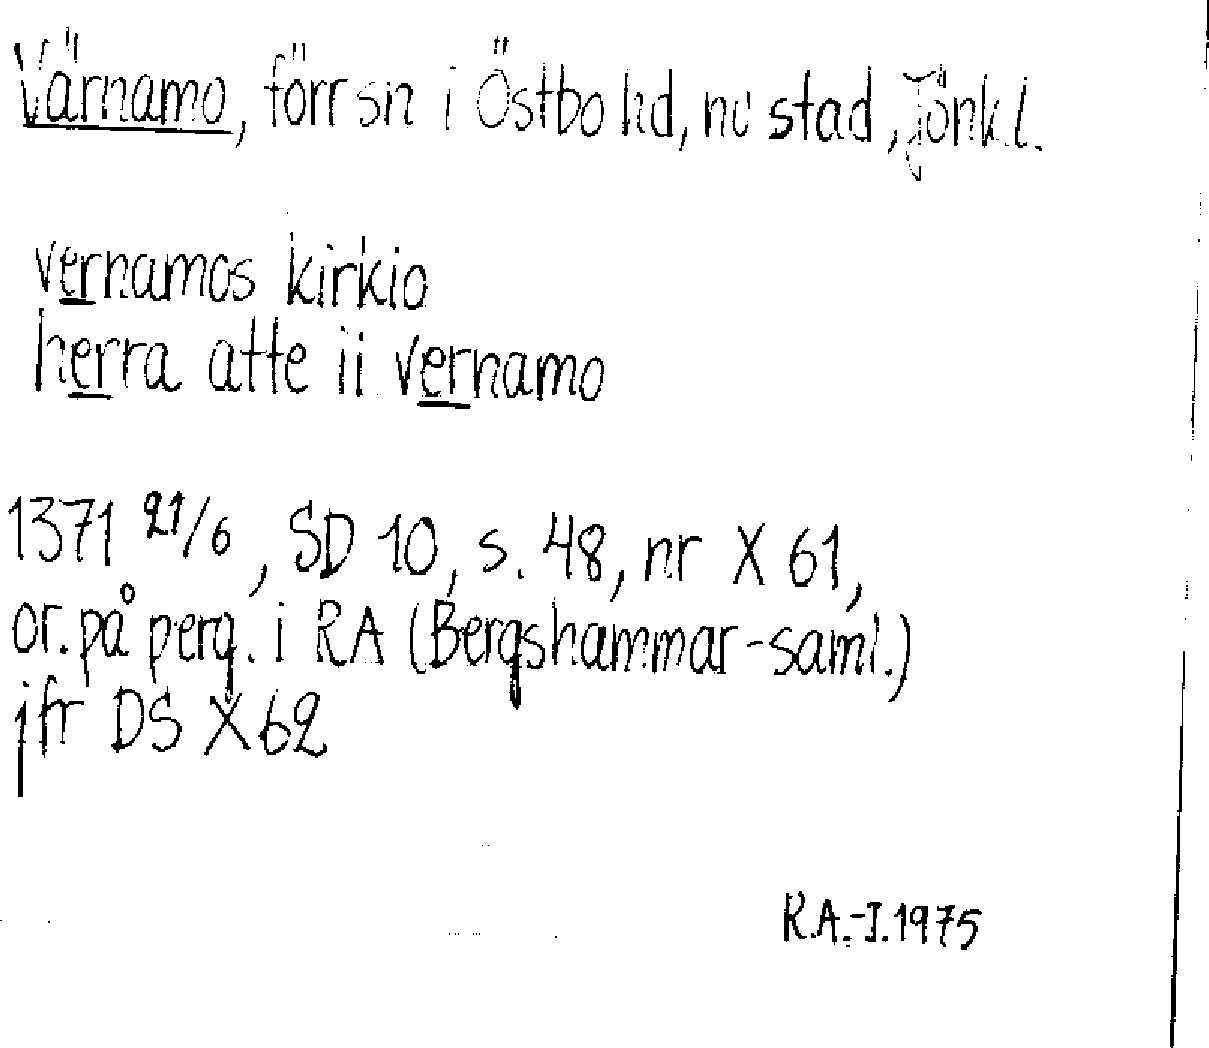 Värnamo, förr sn i Östbo hd, nu stad, Jönk.l.
vernamos kirkio
herra atte ii vernamo
1371 21/6, SD 10, s. 48, nr X 61,
or. på perg. i RA (Bergshammar-saml.)
jfr DS X 62
R.A.-I.1975